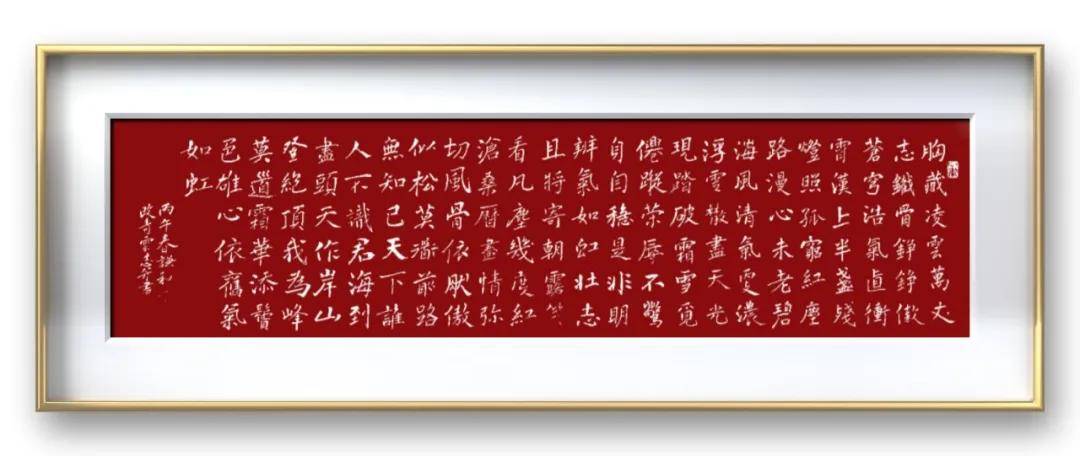 胸藏凌雲萬丈
志鐵骨錚錚傲
蒼穹浩氣直衝
霄漢上半盞殘
燈照孤窮紅塵
路漫心未老碧
海風清氣更濃
浮雲散盡天光
現踏破霜雪覓
僊蹤榮辱不驚
自自穩是非明
辯氣如虹壯志
且將寄朝露笑
看凡塵幾度紅
滄桑曆盡情弥
切風骨依肰傲
似松莫愁前路
無知己天下誰
人不識君海到
盡頭天作岸山
登絕頂我為峰
莫道霜華添鬢
邑雄心依舊氣
如虹
丙午春
書